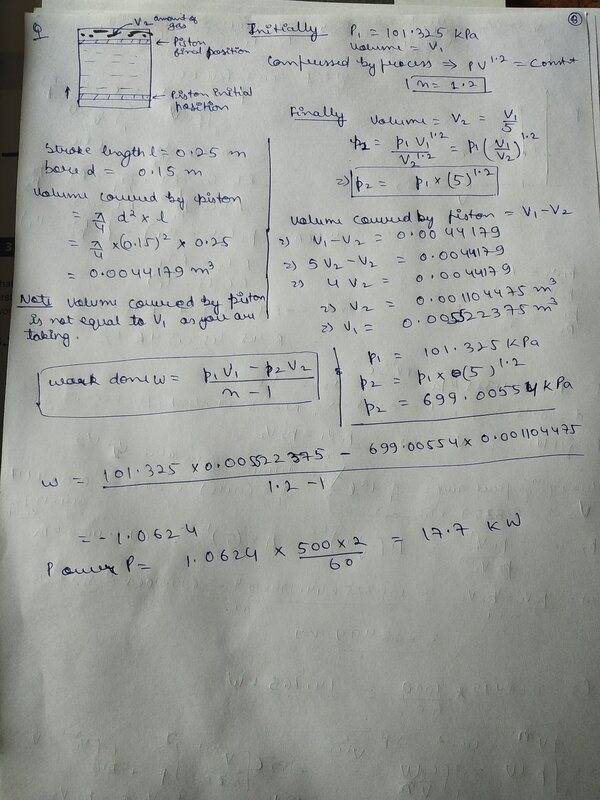 Q
V2 amount of gas
Piston final position
Piston initial position
Initially P1 = 101.325 kPa
Volume = V1
Compressed by process ⇒ PV^1.2 = Const
n = 1.2
Finally Volume = V2 = V1/5
p2 = p1 V1^1.2 / V2^1.2 = p1 (V1/V2)^1.2
⇒ p2 = p1 × (5)^1.2
Stroke length l = 0.25 m
bore d = 0.15 m
Volume covered by piston
= π/4 d² × l
= π/4 × (0.15)² × 0.25
= 0.0044179 m³
Note Volume covered by piston
is not equal to V1 as you are
taking.
Volume covered by piston = V1 - V2
⇒ V1 - V2 = 0.0044179
⇒ 5V2 - V2 = 0.0044179
⇒ 4V2 = 0.0044179
⇒ V2 = 0.001104475 m³
⇒ V1 = 0.005522375 m³
work done W = (p1 V1 - p2 V2) / (n - 1)
p1 = 101.325 KPa
p2 = p1 × (5)^1.2
p2 = 699.00554 kPa
W = (101.325 × 0.00522375 - 699.00554 × 0.001104475) / (1.2 - 1)
= -1.0624
Power P = 1.0624 × (500 × 2)/60 = 17.7 KW